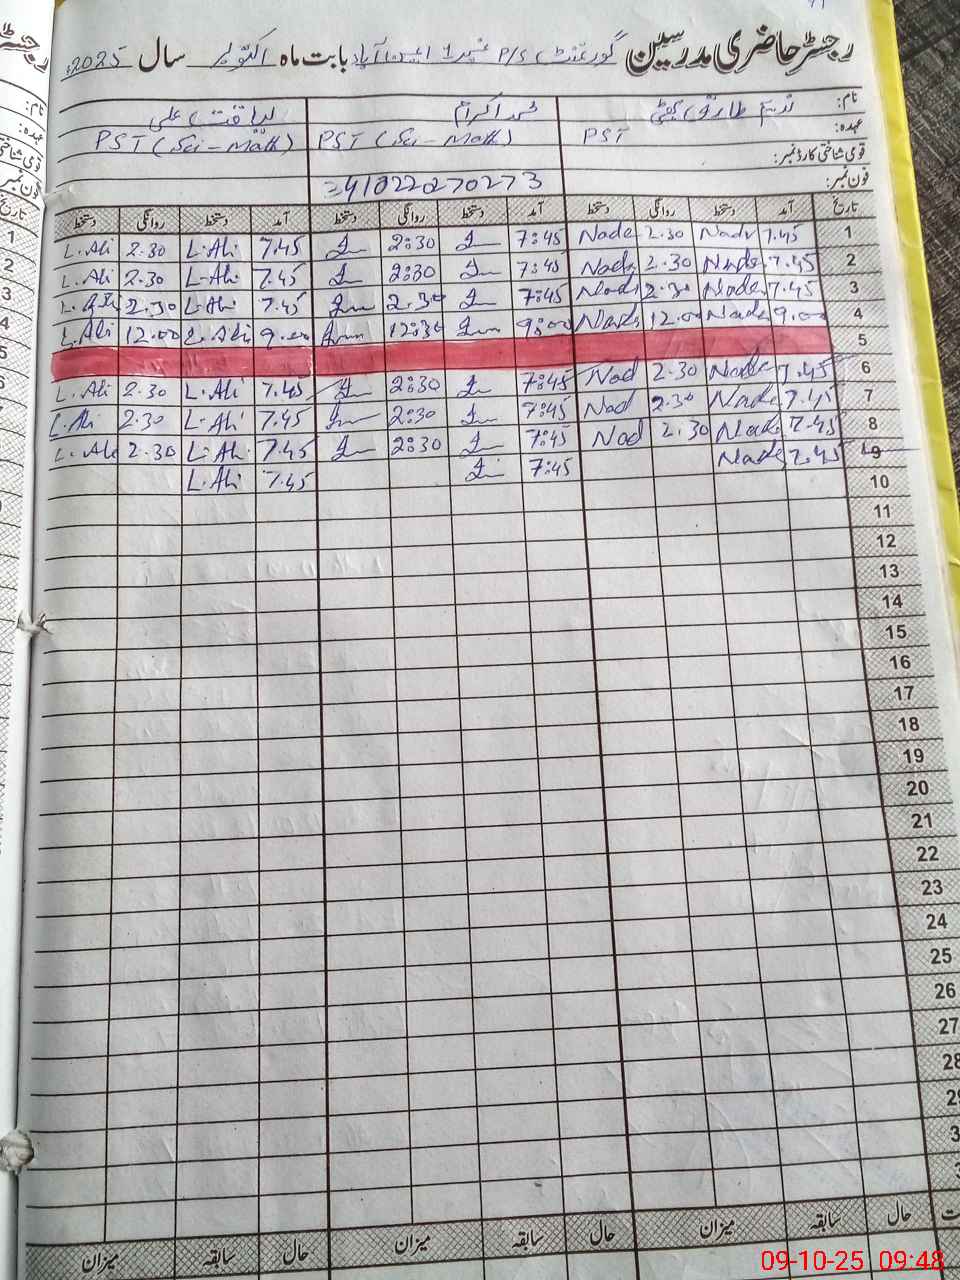 رجسٹر حاضری مدرسین گورنمنٹ P/S نمبر 1 بابت ماہ اکتوبر سال 2025ء
نام: ندیم طارق بھٹی محمد اکرام لیاقت علی
عہدہ: PST PST (Sci-Math) PST (Sci-Math)
قومی شناختی کارڈ نمبر:
فون نمبر:
تاریخ آمد دستخط روانگی دستخط آمد دستخط روانگی دستخط آمد دستخط روانگی دستخط
1 7.45 Nade 2.30 Nade 7:45 2:30 7.45 L.Ali 2.30 L.Ali
2 7.45 Nade 2.30 Nade 7:45 2:30 7.45 L.Ali 2.30 L.Ali
3 7.45 Nade 2.30 Nade 7:45 2.30 7.45 L.Ali 2.30 L.Ali
4 9.00 Nade 12.00 Nade 9:00 12:30 9.00 L.Ali 12.00 L.Ali
5
6 7.45 Nade 2.30 Nad 7:45 2:30 7.45 L.Ali 2.30 L.Ali
7 7.45 Nade 2.30 Nad 7:45 2:30 7.45 L.Ali 2.30 L.Ali
8 7.45 Nade 2.30 Nad 7:45 2:30 7.45 L.Ali 2.30 L.Ali
9 7.45 Nade 7:45 7.45 L.Ali
10
11
12
13
14
15
16
17
18
19
20
21
22
23
24
25
26
27
28
حال سابقہ میزان حال سابقہ میزان حال سابقہ میزان
09-10-25 09:48